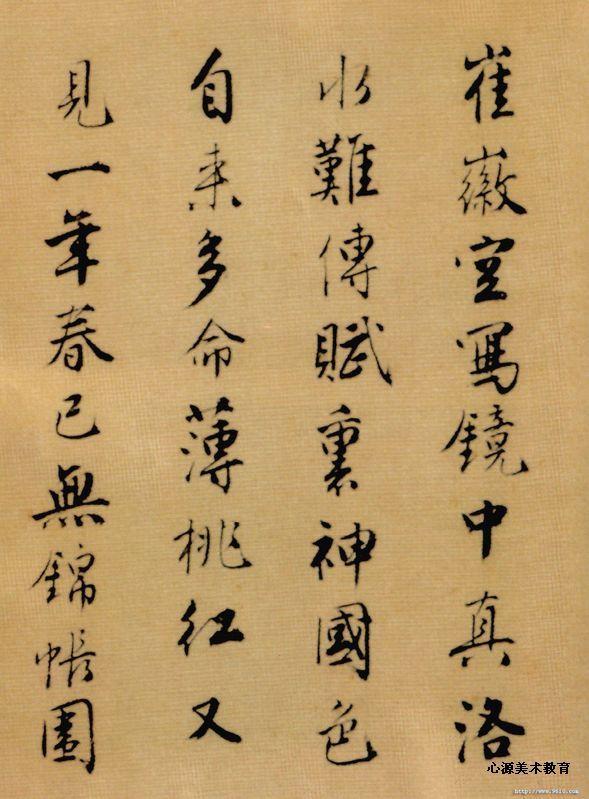 崔徽空寫鏡中真洛
水難傳賦裏神國色
自来多命薄桃紅又
見一年春已無錦帳圍
心源美术教育
http://www.9610.com